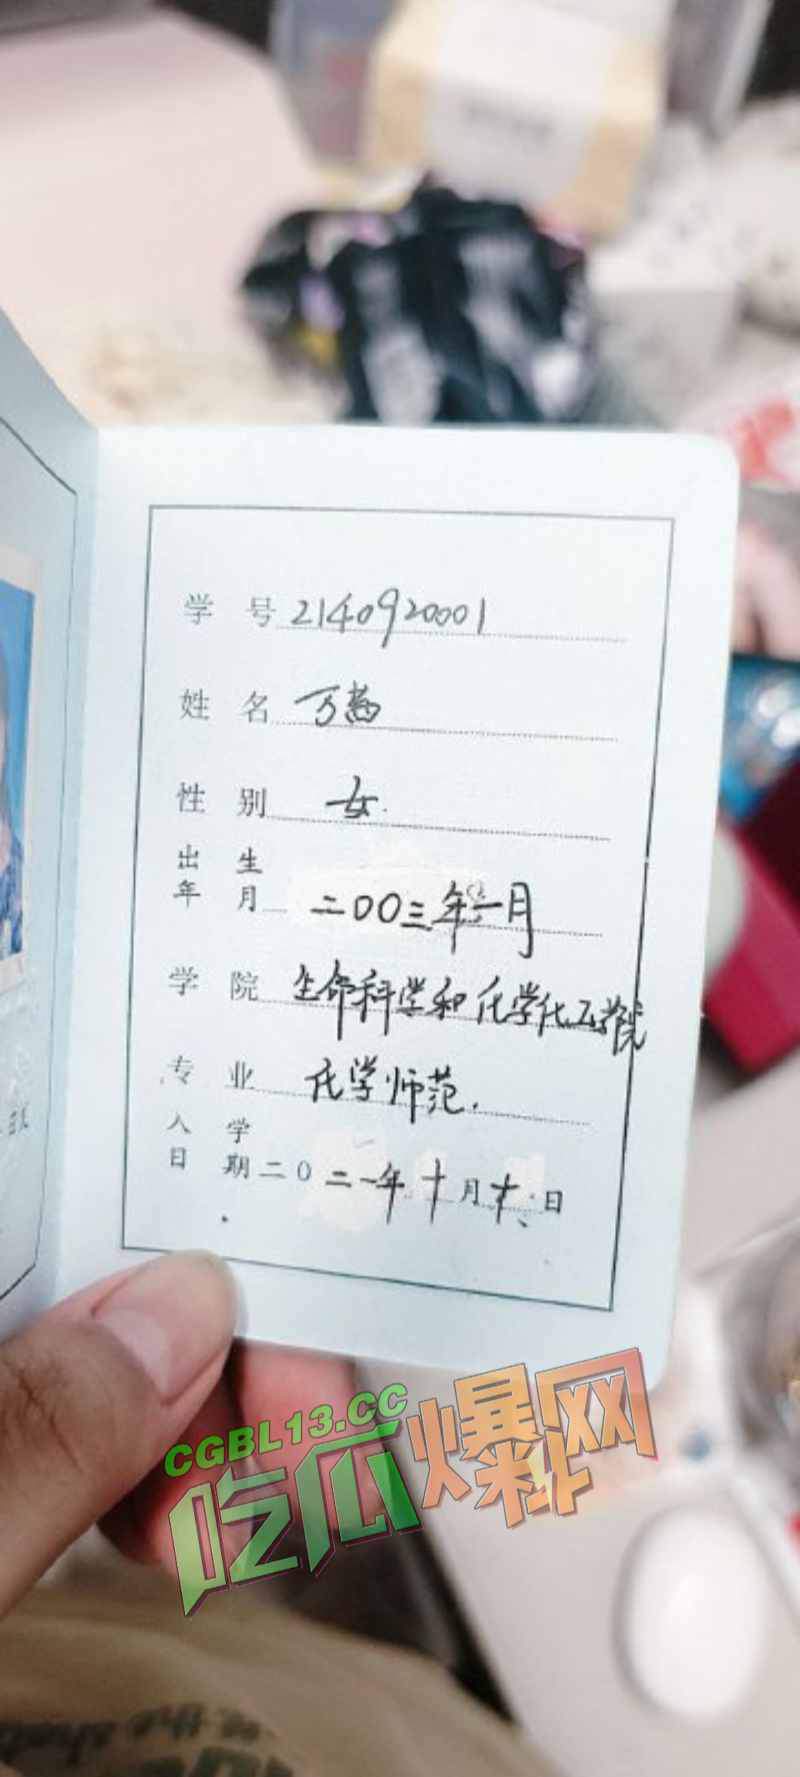 学 号 2140920001
姓 名
性 别 女
出 生
年 月 二00三年一月
学 院 生命科学和化学化工学院
专 业 化学师范
入 学
日 期 二0二一年十月十八日
CGBL13.CC
吃瓜爆料网